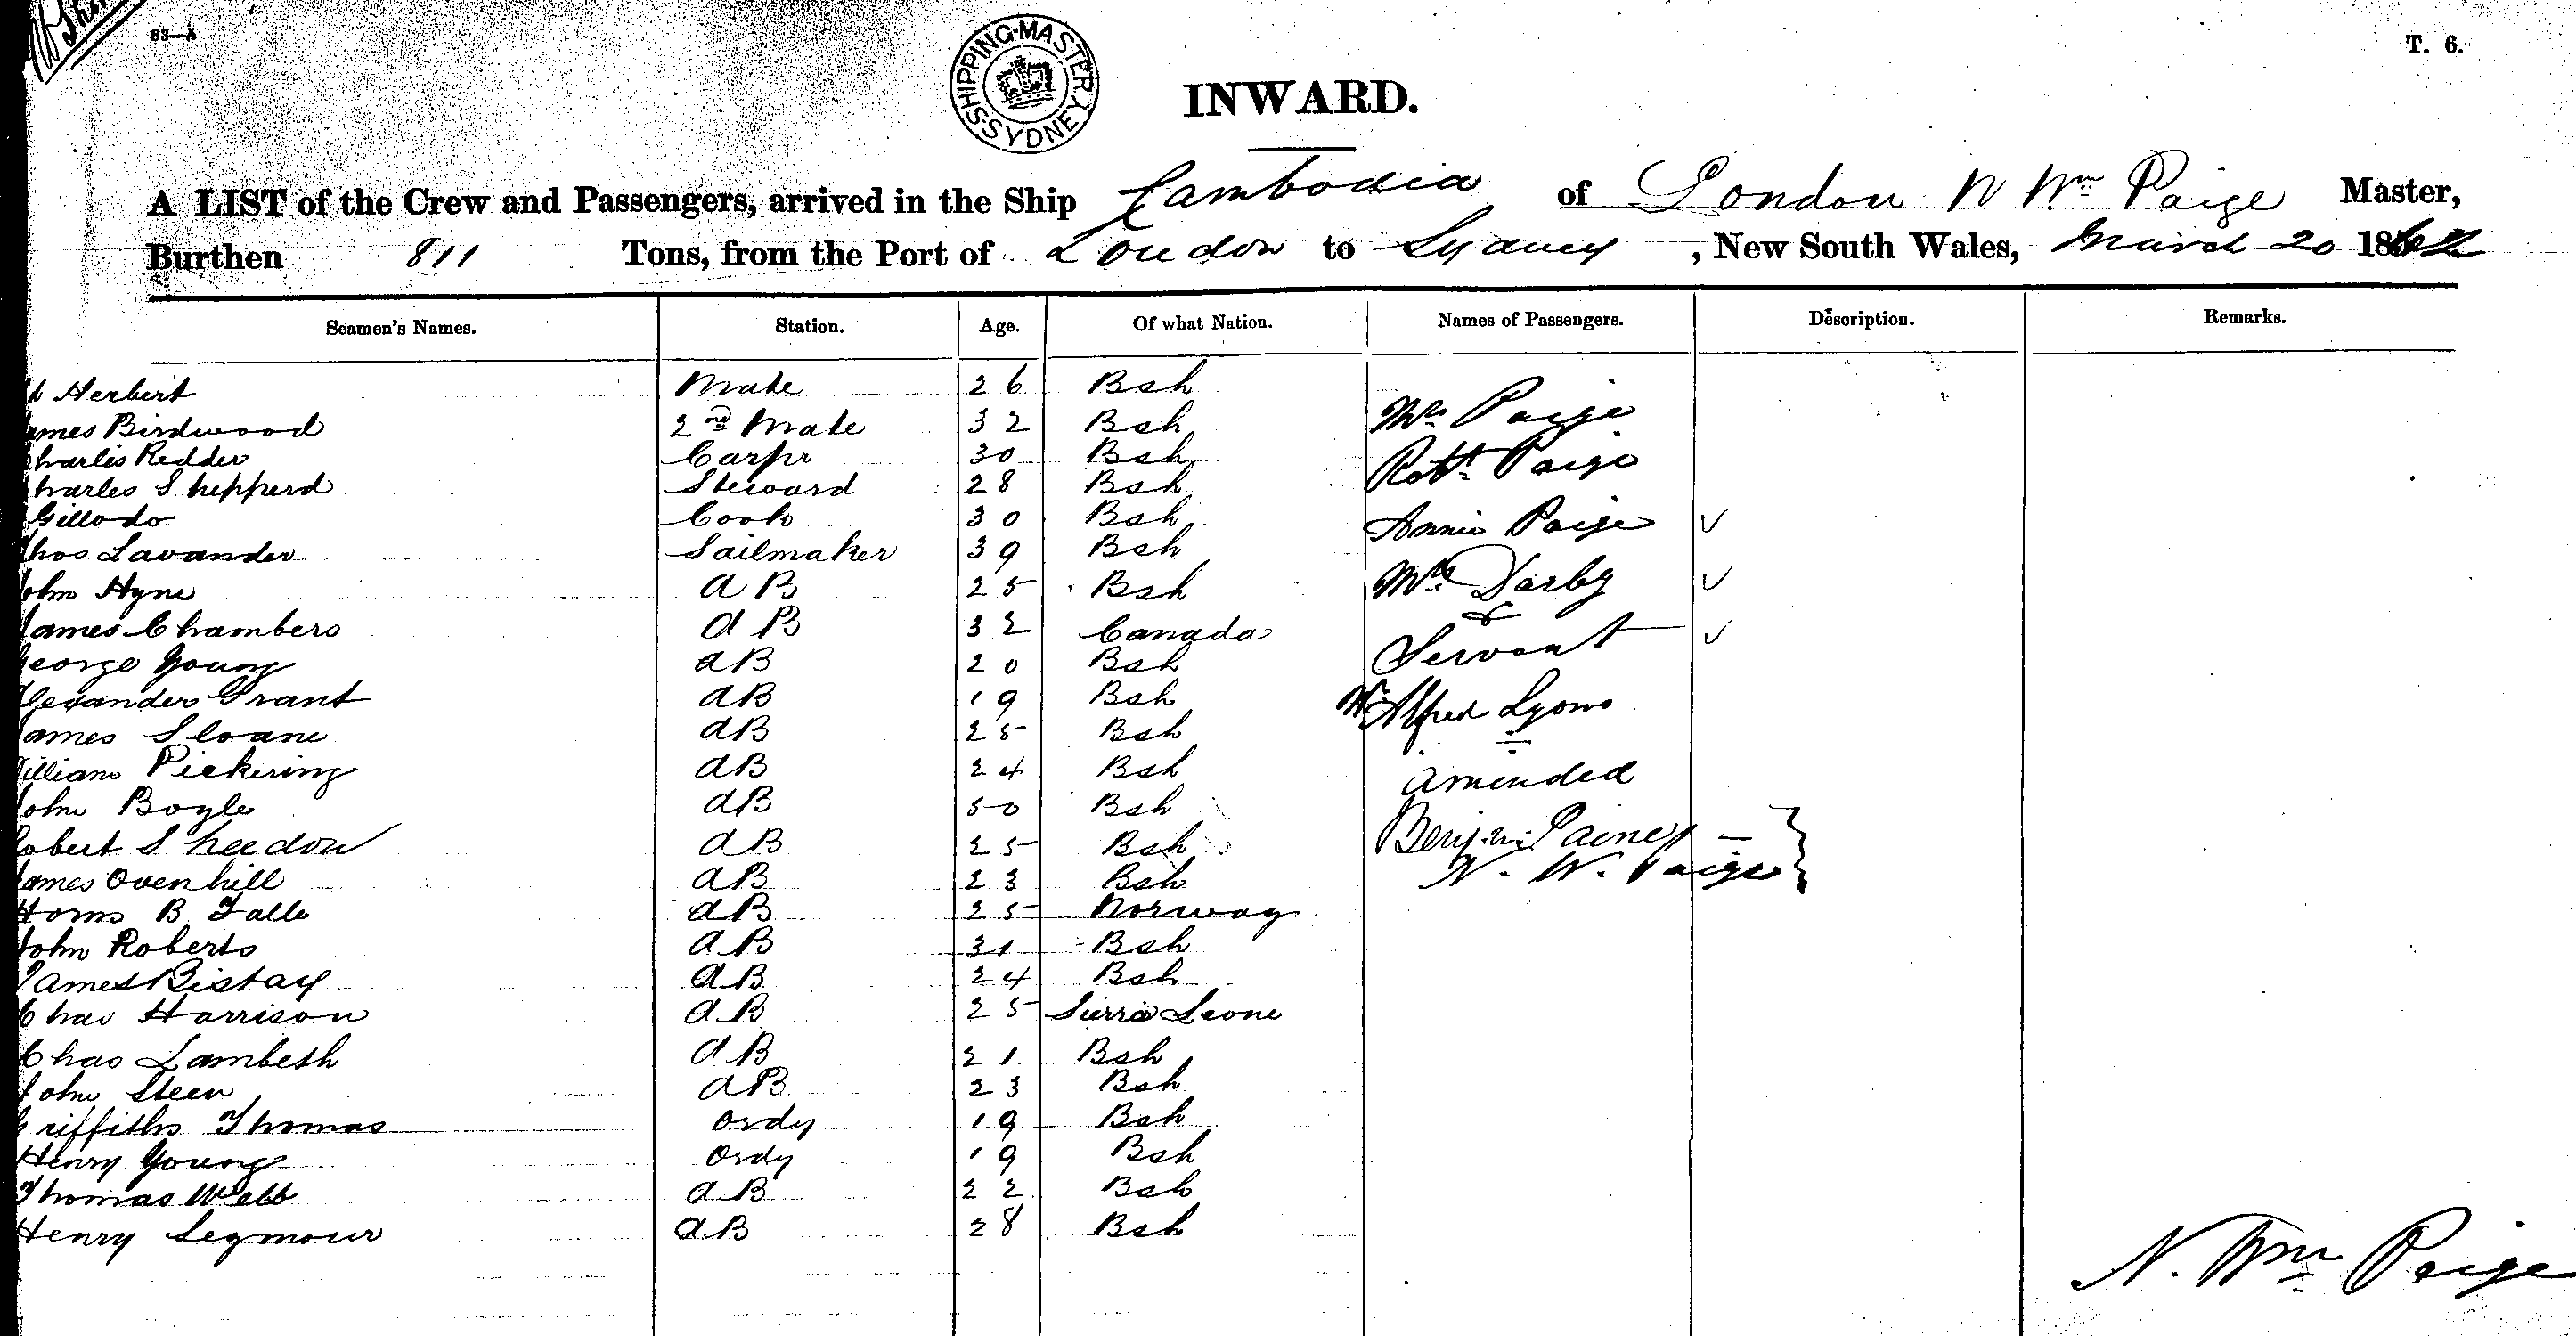 83—A
T. 6.
SHIPPING-MASTER SYDNEY
INWARD.
A LIST of the Crew and Passengers, arrived in the Ship Cambodia of London N Wm Paige Master,
Burthen 811 Tons, from the Port of London to Sydney, New South Wales, March 20 1862
Seamen's Names. Station. Age. Of what Nation. Names of Passengers. Description. Remarks.
Herbert Mate 26 Bsh
ames Birdwood 2nd Mate 32 Bsh Mrs Paige
harles Redder Carpr 30 Bsh Robt Paige
harles Shepperd Steward 28 Bsh
Gillodo Cook 30 Bsh Annie Paige ✓
hos Lavander Sailmaker 39 Bsh
ohn Hyne AB 25 Bsh Mrs Darby ✓
James Chambers AB 32 Canada & Servant ✓
George Young AB 20 Bsh
lexander Grant AB 19 Bsh Mr Alfred Lyons
ames Sloane AB 25 Bsh
illiam Pickering AB 24 Bsh amended
John Boyle AB 50 Bsh
obert Sheedon AB 25 Bsh Benjn Paine
James Ovenhill AB 23 Bsh N. W. Paige
B Falle AB 25 Norway
John Roberts AB 31 Bsh
James Bistay AB 24 Bsh
Chas Harrison AB 25 Sierra Leone
Chas Lambeth AB 21 Bsh
John Steen AB 23 Bsh
Griffiths Thomas Ordy 19 Bsh
Henry Young Ordy 19 Bsh
Thomas Webb AB 22 Bsh
Henry Seymour AB 28 Bsh
N. Wm Paige